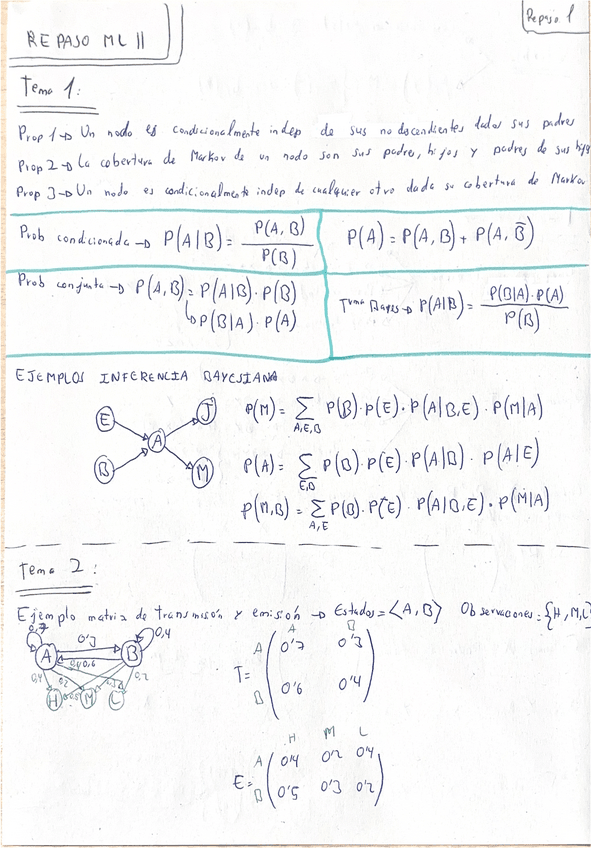 Repaso 1
REPASO ML II
Tema 1:
Prop 1 → Un nodo es condicionalmente indep de sus no descendientes dados sus padres
Prop 2 → La cobertura de Markov de un nodo son sus padres, hijos y padres de sus hijo
Prop 3 → Un nodo es condicionalmente indep de cualquier otro dada su cobertura de Markov
Prob condicionada → P(A|B) = P(A, B) / P(B)
P(A) = P(A, B) + P(A, B̅)
Prob conjunta → P(A, B) = P(A|B) · P(B)
↳ P(B|A) · P(A)
Tᵐᵃ Bayes → P(A|B) = P(B|A) · P(A) / P(B)
EJEMPLOS INFERENCIA BAYESIANA
E J
A
B M
P(M) = Σ A,E,B P(B) · P(E) · P(A|B,E) · P(M|A)
P(A) = Σ E,B P(B) · P(E) · P(A|B) · P(A|E)
P(M,B) = Σ A,E P(B) · P(E) · P(A|B,E) · P(M|A)
Tema 2:
Ejemplo matriz de transmisión y emisión → Estados = <A, B} Observaciones = {H, M, L}
0,7 0'3 0,4
A B
0,6
0,4 0,2 0,2
H M L
A B
T = A 0'7 0'3
B 0'6 0'4
H M L
E = A 0'4 0'2 0'4
B 0'5 0'3 0'2